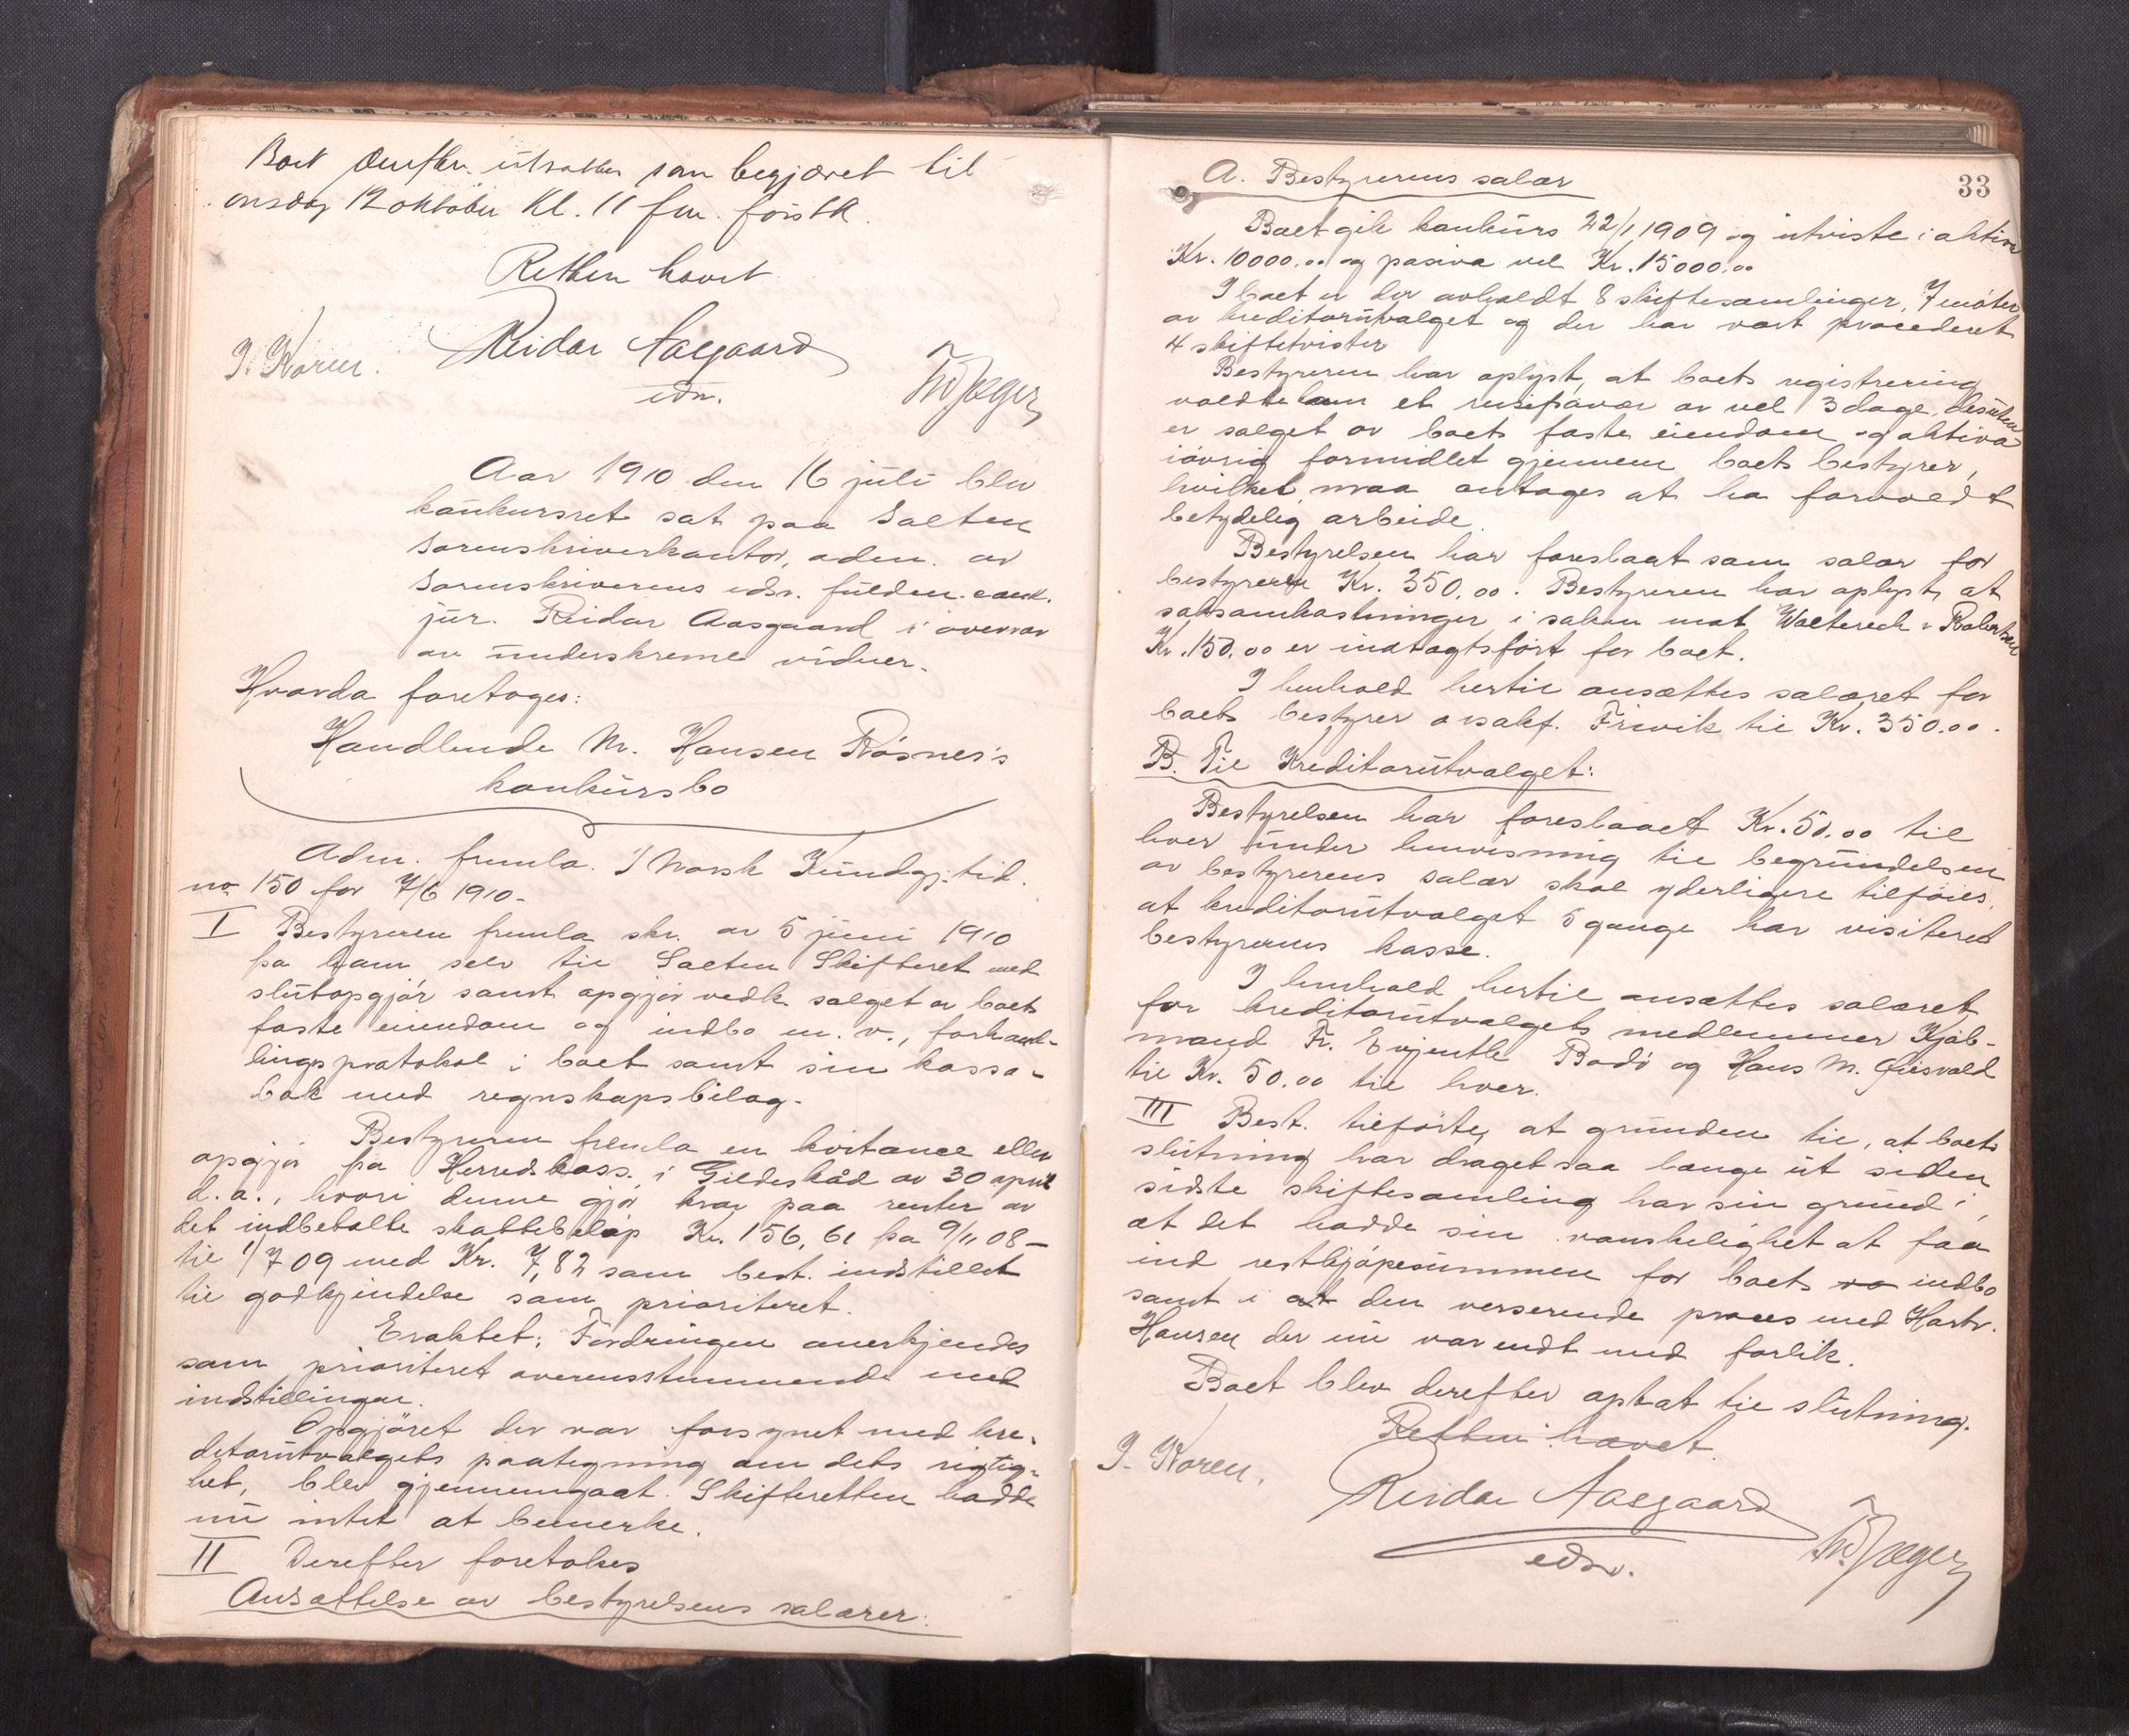 Boet derefter utsattes som begjæret til
onsdag 12 oktober Kl. 11 fm. førstk.
Retten hævet
J. Koren.
Reidar Aasgaard
edsv.
Jæger
Aar 1910 den 16 juli blev
konkursret sat paa Salten
Sorenskriverkontor, adm. av
sorenskriverens edsv. fuldm. cand.
jur. Reidar Aasgaard i overvær
av underskrevne vidner.
Hvorda foretoges:
Handlende M. Hansen Røsnes's
konkursbo
Adm. fremla. I Norsk Kundgj. tid.
no 150 for 7/6 1910.
I Bestyreren fremla skr. av 5 juni 1910
fra ham selv til Salten Skifteret med
slutopgjør samt opgjør vedk. salget av boets
faste eiendom og indbo m. v., forhand-
lingsprotokol i boet samt sin kassa-
bok med regnskapsbilag.
Bestyreren fremla en kvitance eller
opgjør fra Herredskass. i Gildeskål av 30 april
d. a., hvori denne gjør krav paa renter av
det indbetalte skattebeløp Kr. 156,61 fra 9/11 08 –
til 1/7 09 med Kr. 7,82 som best. indstillet
til godkjendelse som prioriteret.
Eraktet: Fordringen anerkjendes
som prioriteret overensstemmende med
indstillingen.
Opgjøret der var forsynet med kre-
ditorutvalgets paategning om dets rigtig-
het, blev gjennemgaat. Skifteretten hadde
nu intet at bemerke.
II Derefter foretokes
Ansættelse av bestyrelsens salærer:
33
A. Bestyrerens salær
Boet gik konkurs 22/1 1909 og utviste i aktiva
Kr. 10000.00 og pasiva vel Kr. 15000.00
I boet er der avholdt 8 skiftesamlinger, 7 møter
av kreditorutvalget og der har vært procederet
4 skiftetvister
Bestyreren har oplyst, at boets registrering
voldte ham et reisefravær av vel 3 dage, desuten
er salget av boets faste eiendom og aktiva
iøvrig formidlet gjennem boets bestyrer,
hvilket maa antages at ha forvoldt
betydelig arbeide.
Bestyrelsen har foreslaat som salær for
bestyreren Kr. 350.00. Bestyreren har oplyst, at
saksomkostninger i saken mot Robertsen
Kr. 150.00 er indtægtsført for boet.
I henhold hertil ansættes salæret for
boets bestyrer o.r.sakf. Friwik til Kr. 350.00.
B. Til Kreditorutvalget:
Bestyrelsen har foreslaaet Kr. 50.00 til
hver under henvisning til begrundelsen
av bestyrerens salær skal yderligere tilføies,
at kreditorutvalget 5 gange har visiteret
bestyrerens kasse.
I henhold hertil ansættes salæret
for kreditorutvalgets medlemmer Kjøb-
mand Fr. Evjenth Bodø og Hans M. Giisvold
til Kr. 50.00 til hver.
III Best. tilførte, at grunden til, at boets
slutning har draget saa længe ut siden
sidste skiftesamling har sin grund i,
at det hadde sin vanskelighet at faa
ind restkjøpesummen for boets indbo
samt i den verserende proces med Hartv.
Hansen der nu var endt med forlik.
Boet blev derefter optat til slutning.
Retten hævet.
J. Koren.
Reidar Aasgaard
edsv.
Jæger